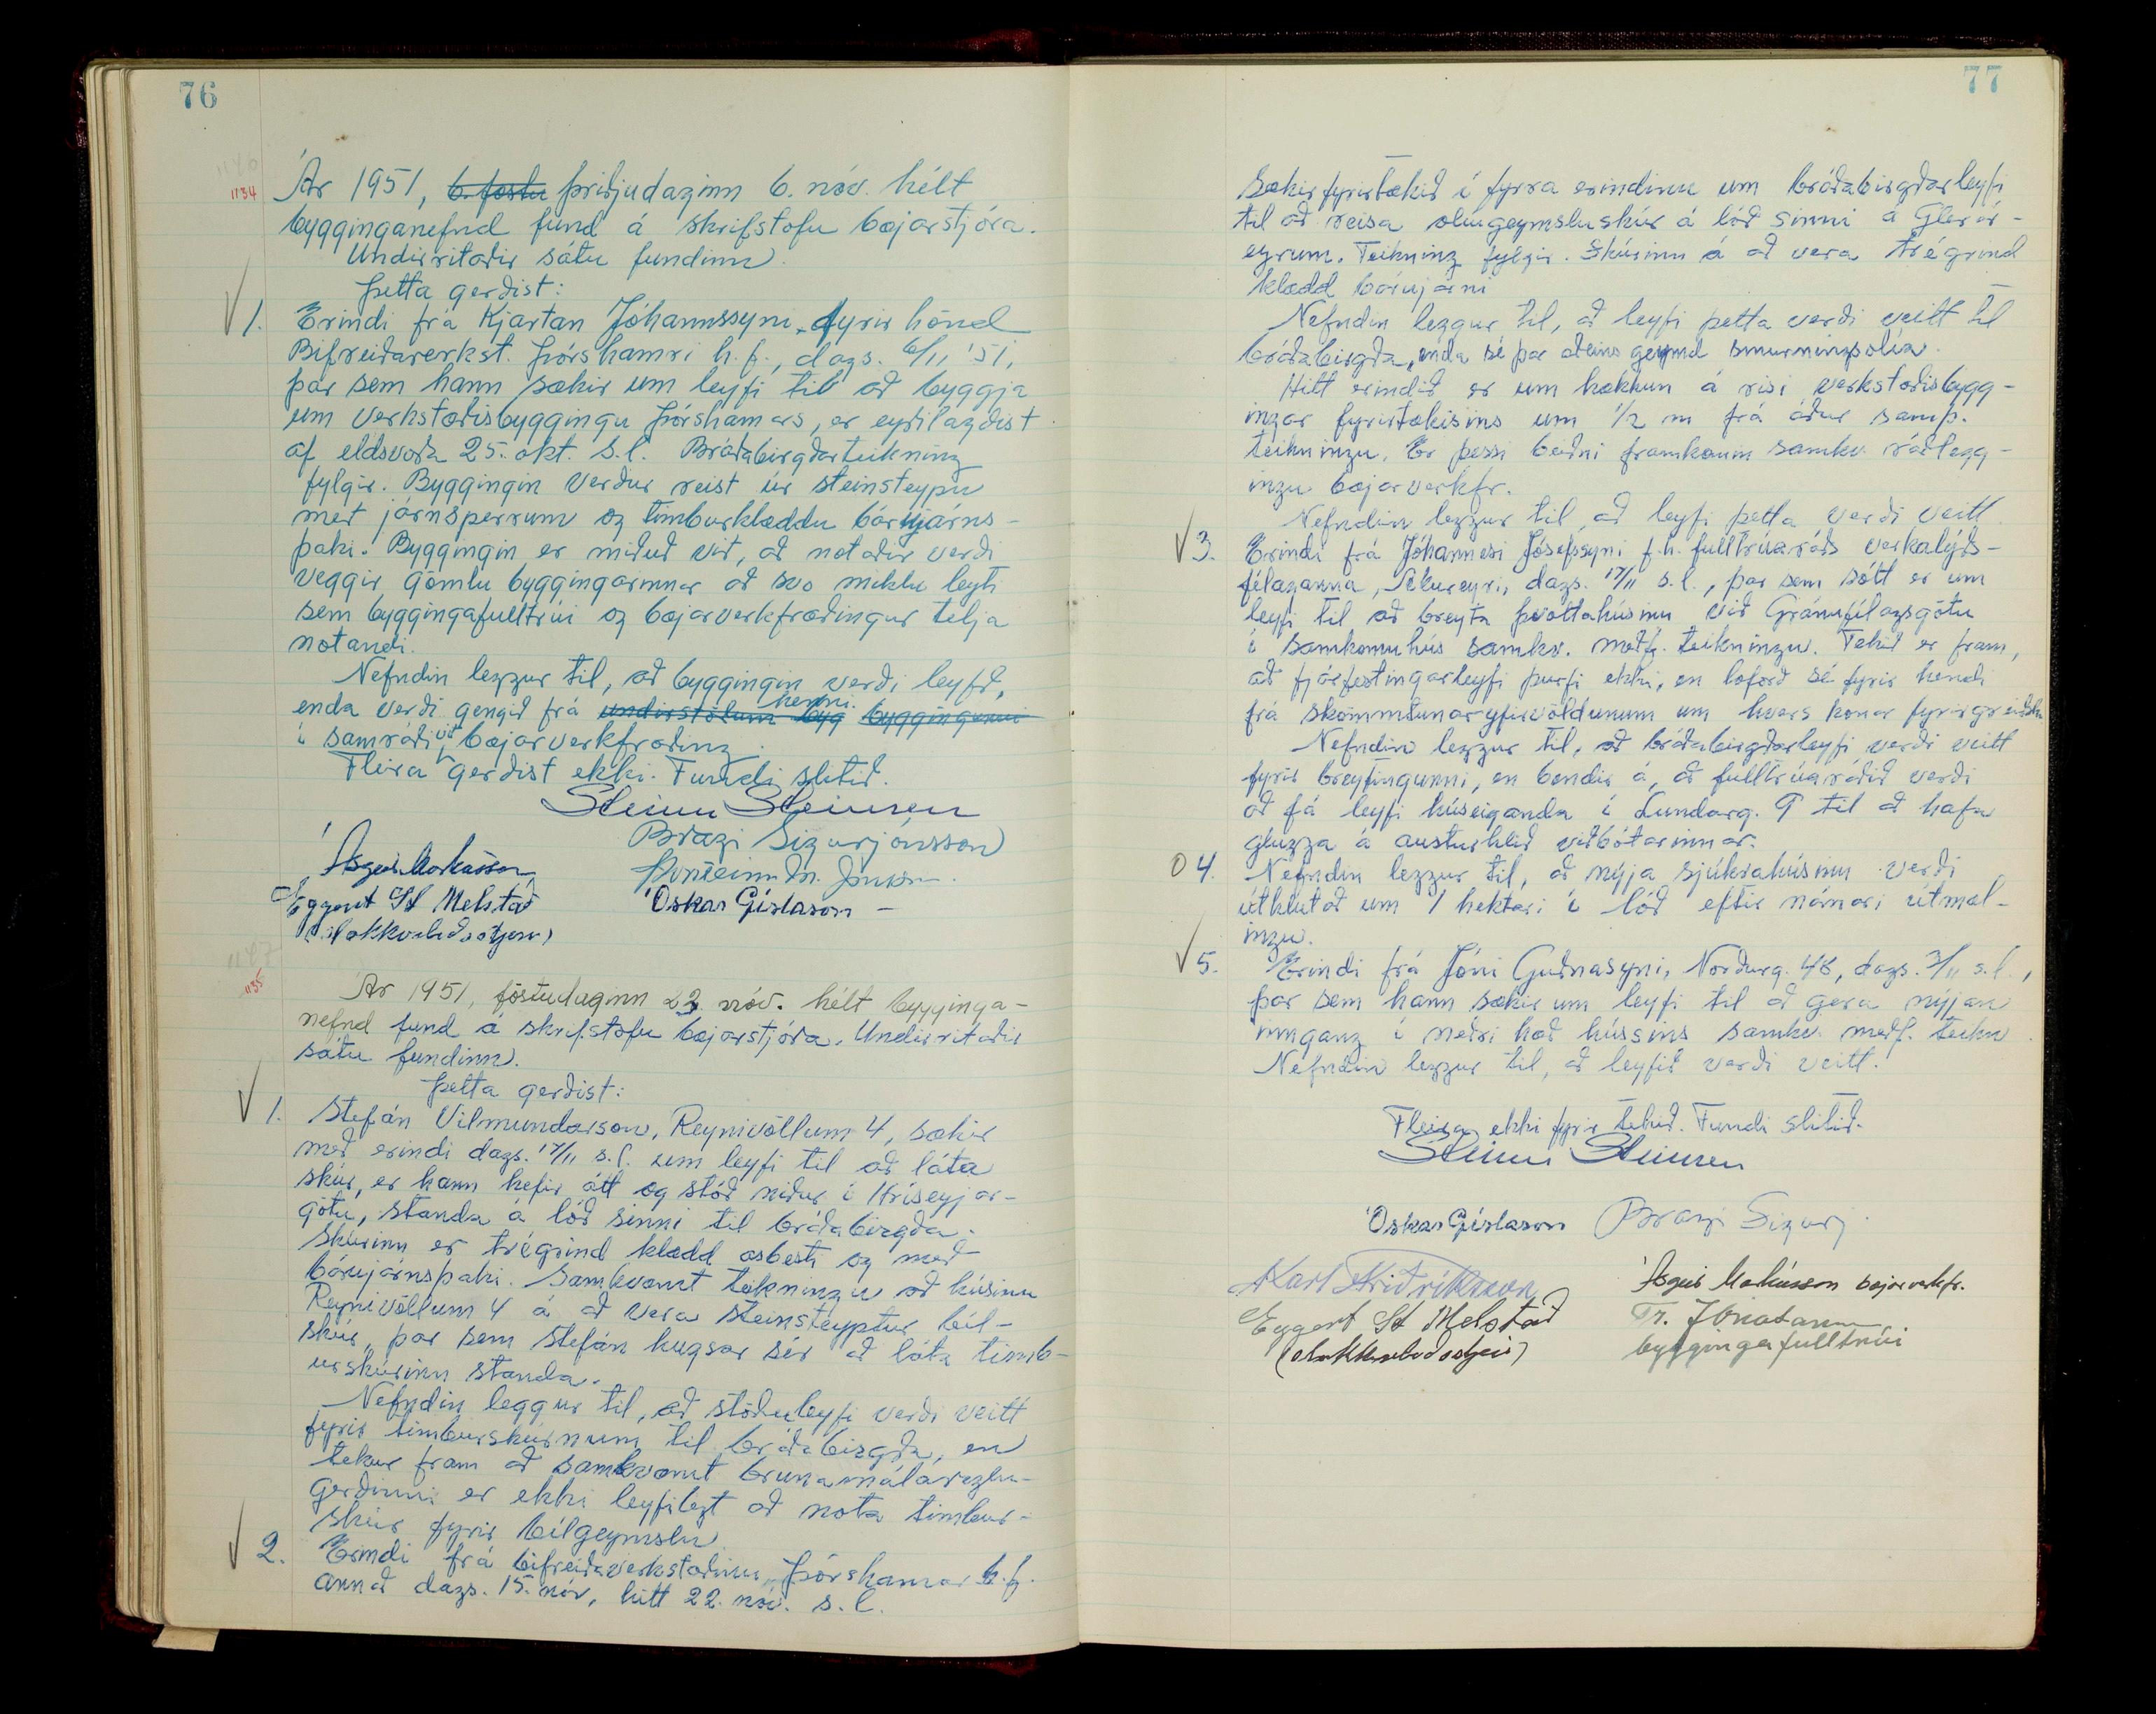 76
1140
1134
Ár 1951, 6. föstu þriðjudaginn 6. nóv. hélt
bygginganefnd fund á skrifstofu bæjarstjóra.
Undirritaðir sátu fundinn.
Þetta gerðist:
1. Erindi frá Kjartan Jóhannssyni, fyrir hönd
Bifreiðaverkst. Þórshamri h.f., dags. 6/11 '51,
þar sem hann sækir um leyfi til að byggja
um verkstæðisbyggingu Þórshamars, er eyðilagðist
af eldsvoða 25. okt. s.l. Bráðabirgðarteikning
fylgir. Byggingin verður reist úr steinsteypu
með járnsperrum og timburklæddu bárujárns-
þaki. Byggingin er miðuð við, að notaðir verði
veggir gömlu byggingarinnar að svo miklu leyti
sem byggingafulltrúi og bæjarverkfræðingur telja
notandi.
Nefndin leggur til, að byggingin verði leyfð,
enda verði gengið frá undirstöðum byg byggingunni henni
í samráði við bæjarverkfræðing.
Fleira gerðist ekki. Fundi slitið.
Steinn Steinsen
Bragi Sigurjónsson
Ásgeir Markússon
Eggert St Melstað
(slökkviliðsstjóri)
Óskar Gíslason
1135
Ár 1951, föstudaginn 23. nóv. hélt bygginga-
nefnd fund á skrifstofu bæjarstjóra. Undirritaðir
sátu fundinn.
Þetta gerðist:
1. Stefán Vilmundarson, Reynivöllum 4, sækir
með erindi dags. 17/11 s.l. um leyfi til að láta
skúr, er hann hefir átt og stóð niður í Hríseyjar-
götu, standa á lóð sinni til bráðabirgða.
Skúrinn er trégrind klædd asbesti og með
bárujárnsþaki. Samkvæmt teikningu að húsinu
Reynivöllum 4 á að vera steinsteyptur bíl-
skúr, þar sem Stefán hugsar sér að láta timb-
urskúrinn standa.
Nefndin leggur til, að stöðuleyfi verði veitt
fyrir timburskúrnum til bráðabirgða, en
tekur fram að samkvæmt brunamálareglu-
gerðinni er ekki leyfilegt að nota timbur-
skúr fyrir bílgeymslu.
2. Erindi frá bifreiðaverkstæðinu Þórshamar h.f.
annað dags. 15. nóv, hitt 22. nóv. s.l.
77
Sækir fyrirtækið í fyrra erindinu um bráðabirgðarleyfi
til að reisa olíugeymsluskúr á lóð sinni á Glerár-
eyrum. Teikning fylgir. Skúrinn á að vera trégrind
klædd bárujárni
Nefndin leggur til, að leyfi þetta verði veitt til
bráðabirgða, enda sé þar aðeins geymd smurningsolía.
Hitt erindið er um hækkun á risi verkstæðisbygg-
ingar fyrirtækisins um 1/2 m frá áður samþ.
teikningu. Er þessi beiðni framkomin samkv. ráðlegg-
ingu bæjarverkfr.
Nefndin leggur til, að leyfi þetta verði veitt
3. Erindi frá Jóhannesi Jósefssyni f.h. fulltrúaráðs verkalýðs-
félaganna, Akureyri, dags. 17/11 s.l., þar sem sótt er um
leyfi til að breyta þvottahúsinu við Gránufélagsgötu
í samkomuhús samkv. meðf. teikningu. Tekið er fram,
að fjárfestingarleyfi þurfi ekki, en loforð sé fyrir hendi
frá skömmtunaryfirvöldunum um hvers konar fyrirgreiðslu
Nefndin leggur til, að bráðabirgðarleyfi verði veitt
fyrir breytingunni, en bendir á, að fulltrúaráðið verði
að fá leyfi húseiganda í Lundarg. 9 til að hafa
glugga á austurhlið viðbótarinnar.
04. Nefndin leggur til, að nýja sjúkrahúsinu verði
úthlutað um 1 hektari í lóð eftir nánari útmæl-
ingu.
5. Erindi frá Jóni Guðnasyni, Norðurg. 48, dags. 3/11 s.l.,
þar sem hann sækir um leyfi til að gera nýjan
inngang í neðri hæð hússins samkv. meðf. teikn.
Nefndin leggur til, að leyfið verði veitt.
Fleira ekki fyrir tekið. Fundi slitið.
Steinn Steinsen
Óskar Gíslason Bragi Sigurj.
Karl Friðriksson Ásgeir Markússon bæjarverkfr.
Eggert St Melstað Tr. Jónatansson
(slökkviliðsstjóri) byggingafulltrúi